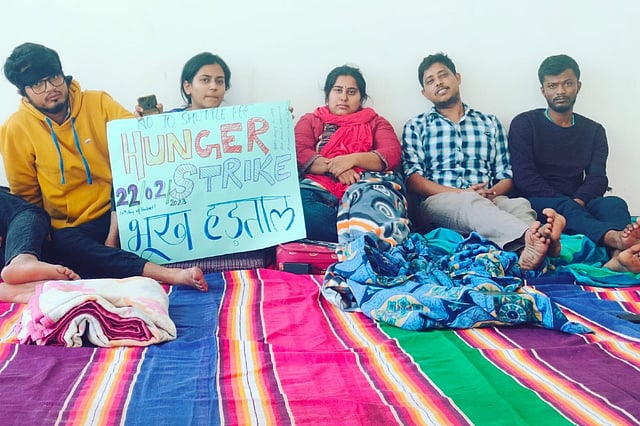 NO TO SHUTTLE FEE
HUNGER
STRIKE
22/02/2023
भूख हड़ताल